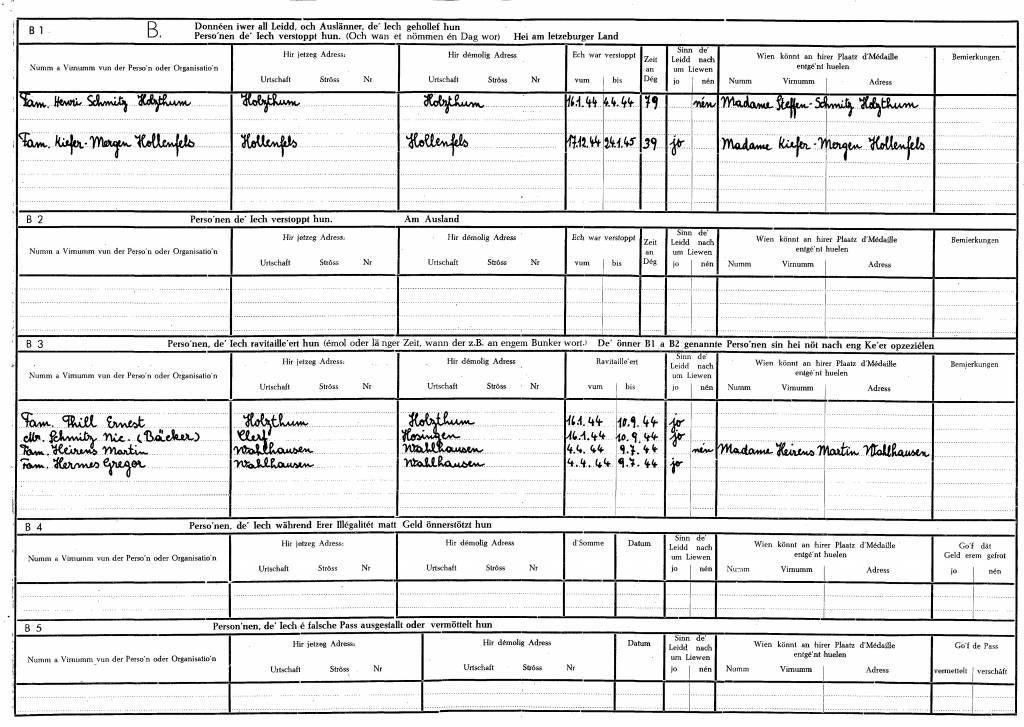 B 1 B. Donnéen iwer all Leidd, och Auslänner, de' Iech gehollef hun
Perso'nen de' Iech verstoppt hun. (Och wan et nömmen én Dag wor) Hei am letzeburger Land
Numm a Virnumm vun der Perso'n oder Organisatio'n
Hir jetzeg Adress:
Urtschaft Ströss Nr
Hir démolig Adress:
Urtschaft Ströss Nr
Ech war verstoppt
vum bis
Zeit
an
Dég
Sinn de'
Leidd nach
um Liewen
jo nén
Wien könnt an hirer Plaatz d'Médaille
entgé'nt huelen
Numm Virnumm Adress
Bemierkungen
Fam. Henri Schmitz Holzthum Holzthum Holzthum 16.1.44 4.4.44 79 nén Madame Steffen-Schmitz Holzthum
Fam. Kiefer-Mergen Hollenfels Hollenfels Hollenfels 17.12.44 24.1.45 39 jo Madame Kiefer-Mergen Hollenfels
B 2 Perso'nen de' Iech verstoppt hun. Am Ausland
Numm a Virnumm vun der Perso'n oder Organisatio'n
Hir jetzeg Adress:
Urtschaft Ströss Nr
Hir démolig Adress
Urtschaft Ströss Nr
Ech war verstoppt
vum bis
Zeit
an
Dég
Sinn de'
Leidd nach
um Liewen
jo nén
Wien könnt an hirer Plaatz d'Médaille
entgé'nt huelen
Numm Virnumm Adress
Bemierkungen
B 3 Perso'nen, de' Iech ravitaille'ert hun (émol oder länger Zeit, wann der z.B. an engem Bunker wort.) De' önner B1 a B2 genannte Perso'nen sin hei nöt nach eng Ke'er opzeziélen
Numm a Virnumm vun der Perso'n oder Organisatio'n
Hir jetzeg Adress:
Urtschaft Ströss Nr
Hir démolig Adress
Urtschaft Ströss Nr
Ravitaille'ert
vum bis
Sinn de'
Leidd nach
um Liewen
jo nén
Wien könnt an hirer Plaatz d'Médaille
entgé'nt huelen
Numm Virnumm Adress
Bemierkungen
Fam. Thill Ernest Holzthum Holzthum 16.1.44 10.9.44 jo
Mr. Schmitz Nic. (Bäcker) Clerf Hosingen 16.1.44 10.9.44 jo
Fam. Heirens Martin Wahlhausen Wahlhausen 4.4.44 9.7.44 nén Madame Heirens Martin Wahlhausen
Fam. Hermes Gregor Wahlhausen Wahlhausen 4.4.44 9.7.44 jo
B 4 Perso'nen, de' Iech während Erer Illégalitét matt Geld önnerstötzt hun
Numm a Virnumm vun der Perso'n oder Organisatio'n
Hir jetzeg Adress:
Urtschaft Ströss Nr
Hir démolig Adress
Urtschaft Ströss Nr
d'Somme
Datum
Sinn de'
Leidd nach
um Liewen
jo nén
Wien könnt an hirer Plaatz d'Médaille
entgé'nt huelen
Numm Virnumm Adress
Go'f dât
Geld erem gefrot
jo nén
B 5 Person'nen, de' Iech é falsche Pass ausgestallt oder vermöttelt hun
Numm a Virnumm vun der Perso'n oder Organisatio'n
Hir jetzeg Adress:
Urtschaft Ströss Nr
Hir démolig Adress:
Urtschaft Ströss Nr
Datum
Sinn de'
Leidd nach
um Liewen
jo nén
Wien könnt an hirer Plaatz d'Médaille
entgé'nt huelen
Numm Virnumm Adress
Go'f de Pass
vermettelt verschâft